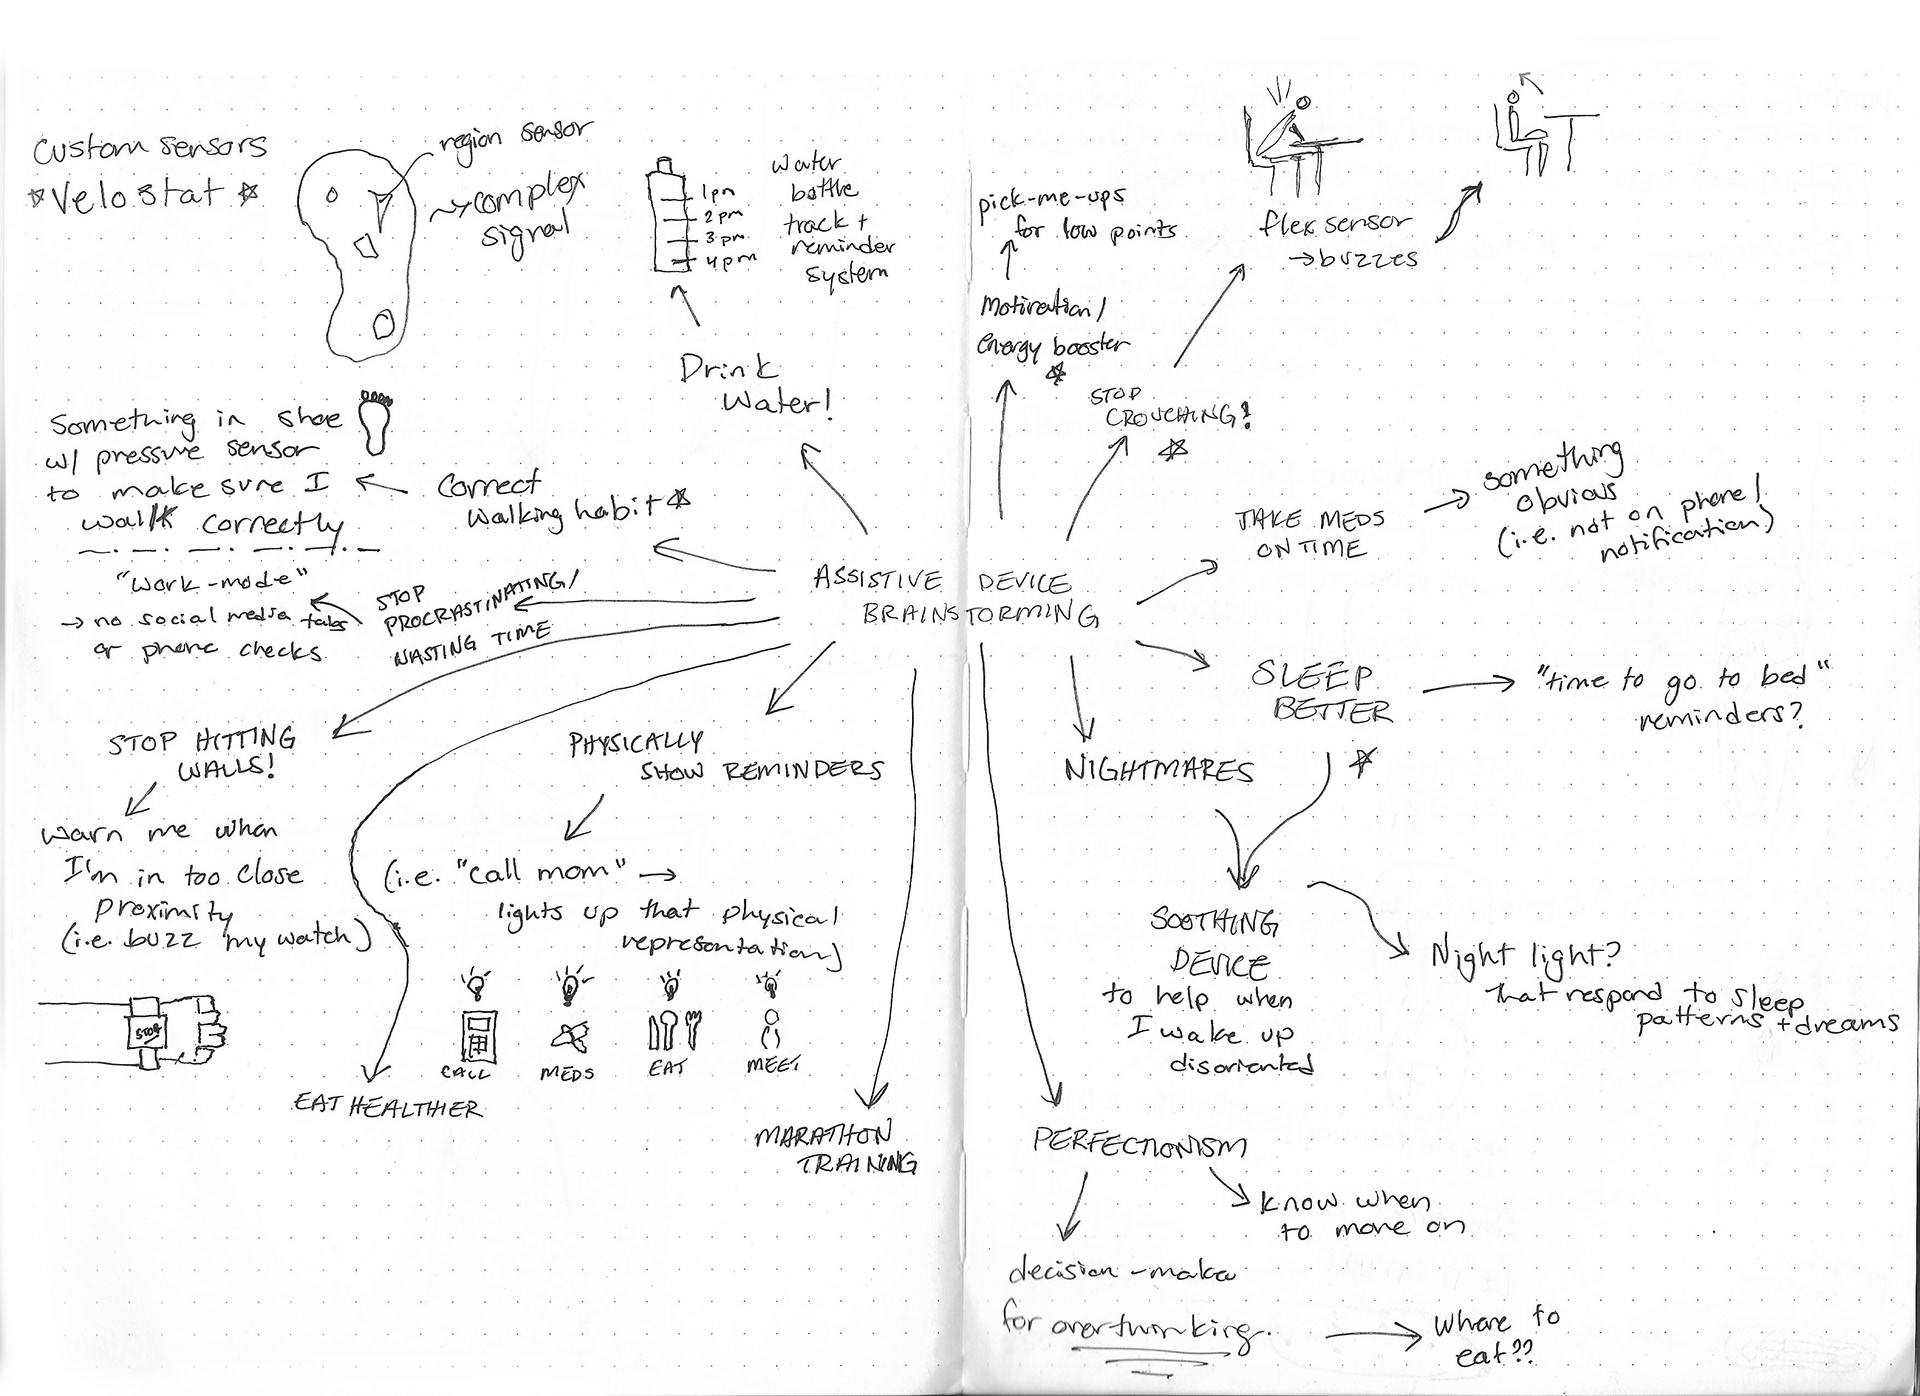 Custom Sensors
☆ Velostat ☆
region sensor
complex
signal
1pm
2pm
3pm
4pm
water
bottle
track +
reminder
system
Drink
Water!
Something in shoe
w/ pressure sensor
to make sure I
walk correctly
Correct
walking habit ☆
"work-mode"
→ no social media tabs
or phone checks
STOP
PROCRASTINATING/
WASTING TIME
STOP HITTING
WALLS!
warn me when
I'm in too close
proximity
(i.e. buzz my watch)
STOP
EAT HEALTHIER
PHYSICALLY
SHOW REMINDERS
(i.e. "call mom" →
lights up that physical
representation)
CALL
MEDS
EAT
MEET
MARATHON
TRAINING
ASSISTIVE DEVICE
BRAINSTORMING
pick-me-ups
for low points
Motivation/
energy booster
☆
STOP
CROUCHING!
☆
flex sensor
→ buzzes
TAKE MEDS
ON TIME
something
obvious
(i.e. not on phone/
notification)
SLEEP
BETTER
☆
"time to go to bed"
reminders?
NIGHTMARES
SOOTHING
DEVICE
to help when
I wake up
disoriented
Night light?
that respond to sleep
patterns + dreams
PERFECTIONISM
know when
to move on
decision-maker
for overthinking.
Where to
eat??